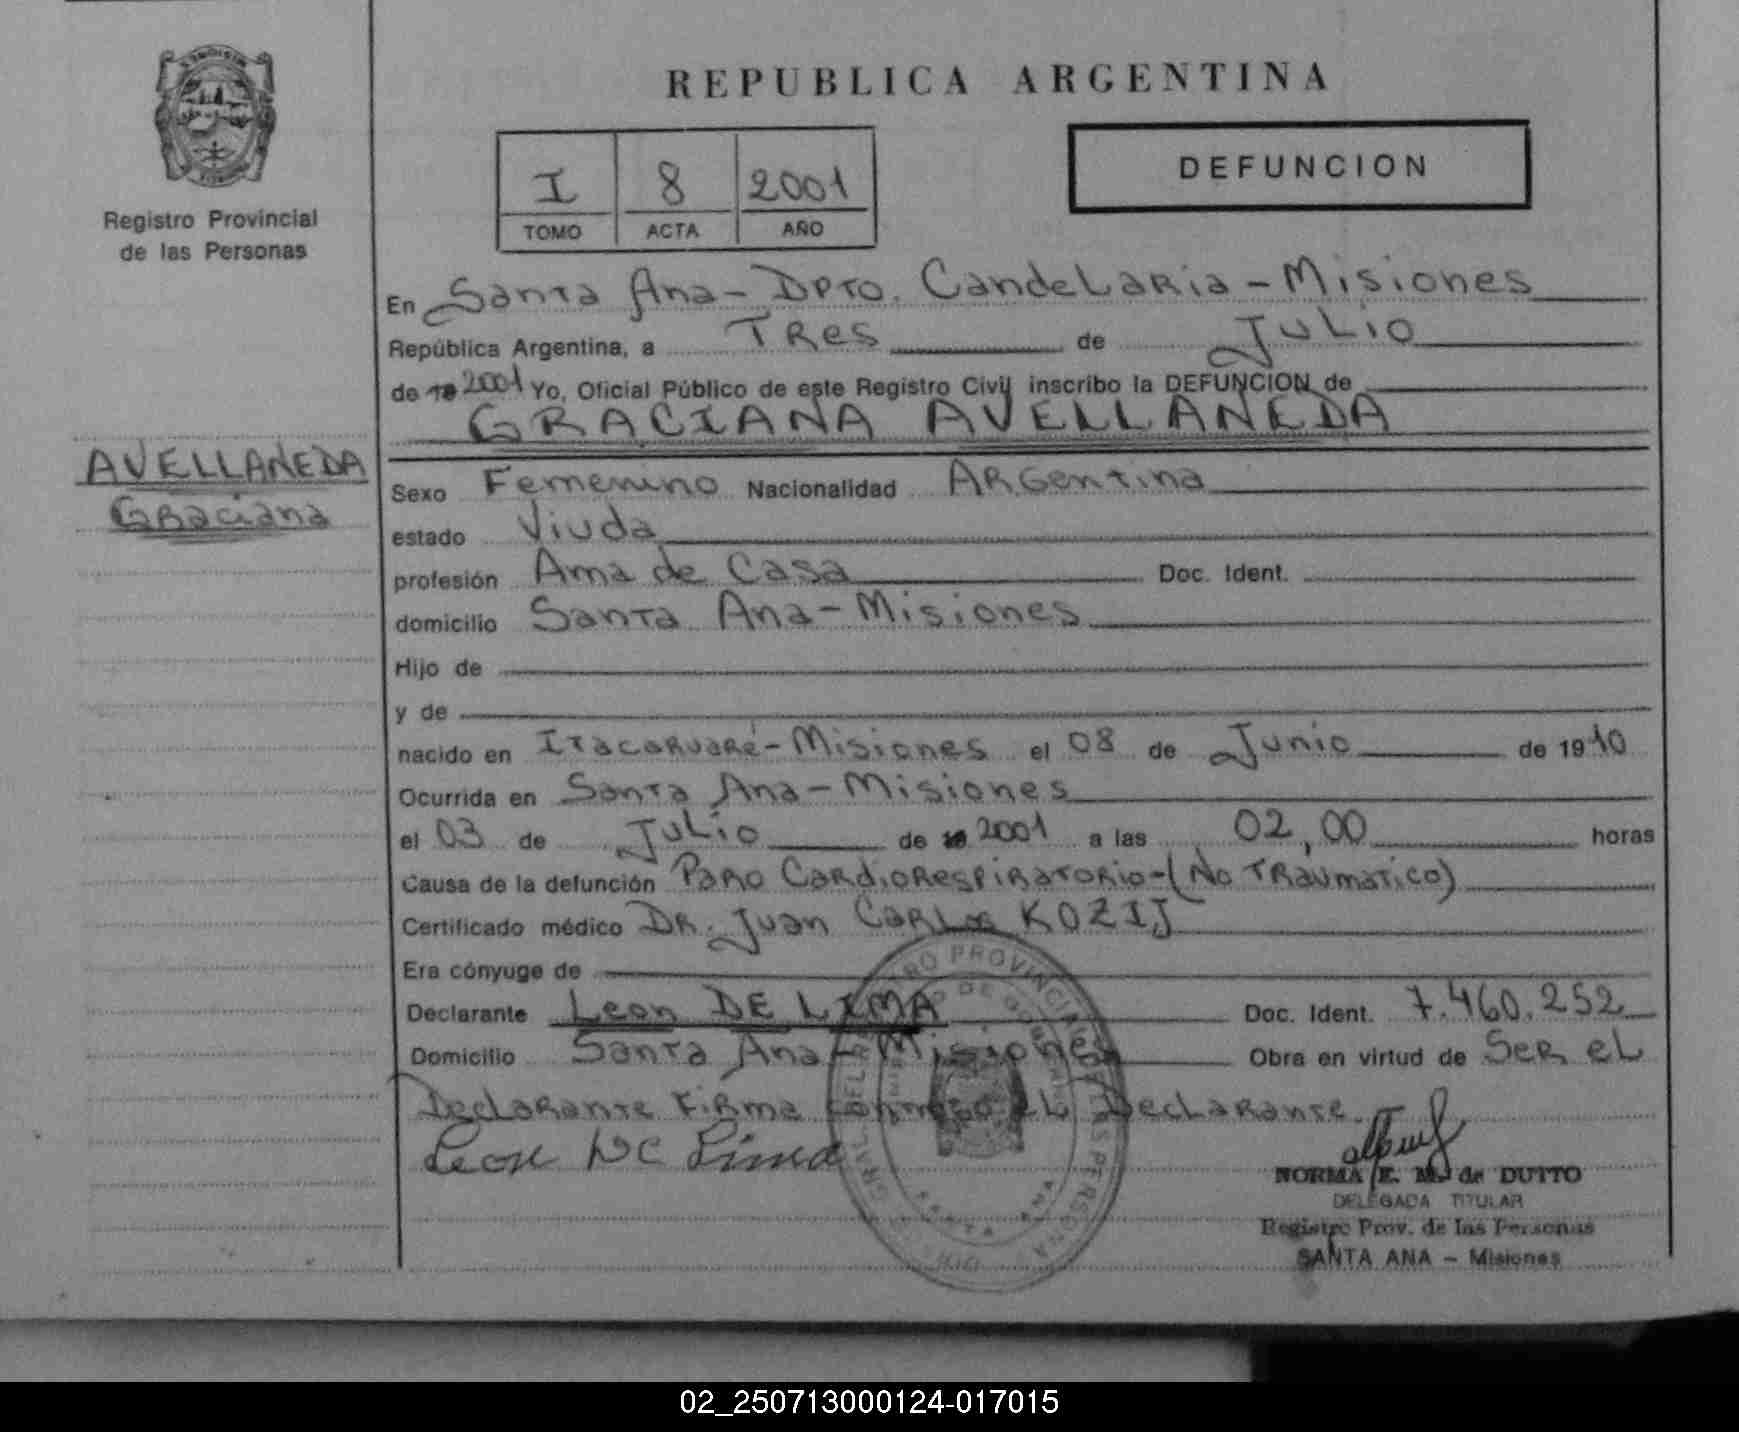 REPUBLICA ARGENTINA
Registro Provincial
de las Personas
I 8 2001
TOMO ACTA AÑO
DEFUNCION
En Santa Ana - DPTO. CandeLaria - Misiones
República Argentina, a TRes de JuLio
de 19 2001 Yo, Oficial Público de este Registro Civil inscribo la DEFUNCION de
GRACIANA AVELLANEDA
AVELLANEDA
Graciana
Sexo Femenino Nacionalidad ARGentina
estado Viuda
profesión Ama de Casa Doc. Ident.
domicilio Santa Ana - Misiones
Hijo de
y de
nacido en Itacaruaré - Misiones el 08 de Junio de 1910
Ocurrida en Santa Ana - Misiones
el 03 de JuLio de 19 2001 a las 02,00 horas
Causa de la defunción Paro CardioRespiratorio - (No Traumatico)
Certificado médico DR. Juan Carlos KOZIJ
Era cónyuge de
Declarante Leon DE LIMA Doc. Ident. 7.460.252
Domicilio Santa Ana - Misiones Obra en virtud de Ser eL
Declarante Firma conmigo EL Declarante.
Leon De Lima
NORMA E. M. de DUTTO
DELEGADA TITULAR
Registro Prov. de las Personas
SANTA ANA - Misiones
02_250713000124-017015